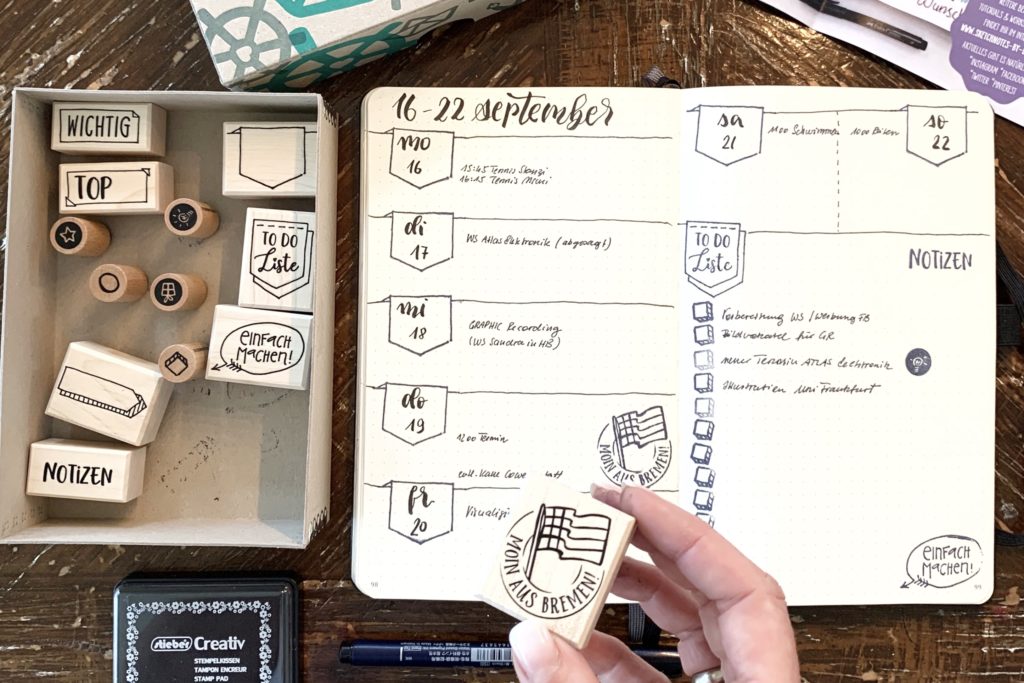 WICHTIG
TOP
TO DO
Liste
EINFACH
MACHEN!
NOTIZEN
Stieber Creativ
STEMPELKISSEN
TAMPON ENCREUR
STAMP PAD
16-22 September
MO
16
15:45 Tennis
16:45 Tennis
di
17
WS Atlas Elektronik (abgesagt)
mi
18
GRAPHIC Recording
(WS Sandra in HB)
do
19
1200 Termin
MOIN AUS BREMEN!
fr
20
MOIN AUS BREMEN!
sa
21
1100 Schwimmen
so
22
1000
TO DO
Liste
NOTIZEN
Vorbereitung WS / Werbung FB
Bildvokabel für GR
neuer Termin ATLAS Elektronik
Illustration Uni Frankfurt
EINFACH
MACHEN!
98
99
Wunsch
TUTORIALS &
FINDET IHR IM
WWW.SKETCHNOTES-BY-
AKTUELLES GIBT ES
*INSTAGRAM *FACEBOOK
*TWITTER *PINTEREST